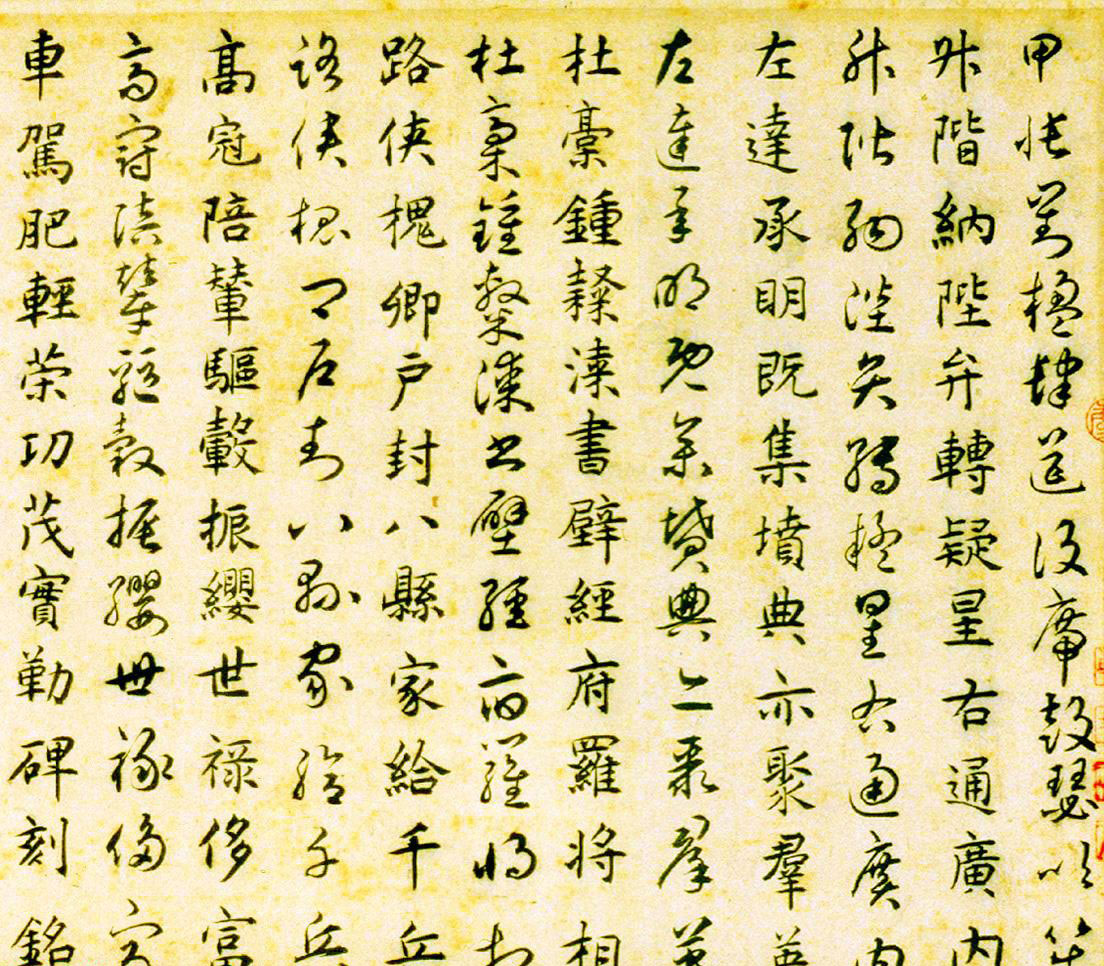 甲帳對楹肆筵設席鼓瑟吹笙
升階納陛弁轉疑星右通廣內
升階納陛弁轉疑星右通廣內
左達承明既集墳典亦聚羣英
左達承明既集墳典亦聚羣英
杜稾鍾隸漆書壁經府羅將相
杜稾鍾隸漆書壁經府羅將相
路俠槐卿戶封八縣家給千兵
路俠槐卿戶封八縣家給千兵
高冠陪輦驅轂振纓世祿侈富
高冠陪輦驅轂振纓世祿侈富
車駕肥輕策功茂實勒碑刻銘